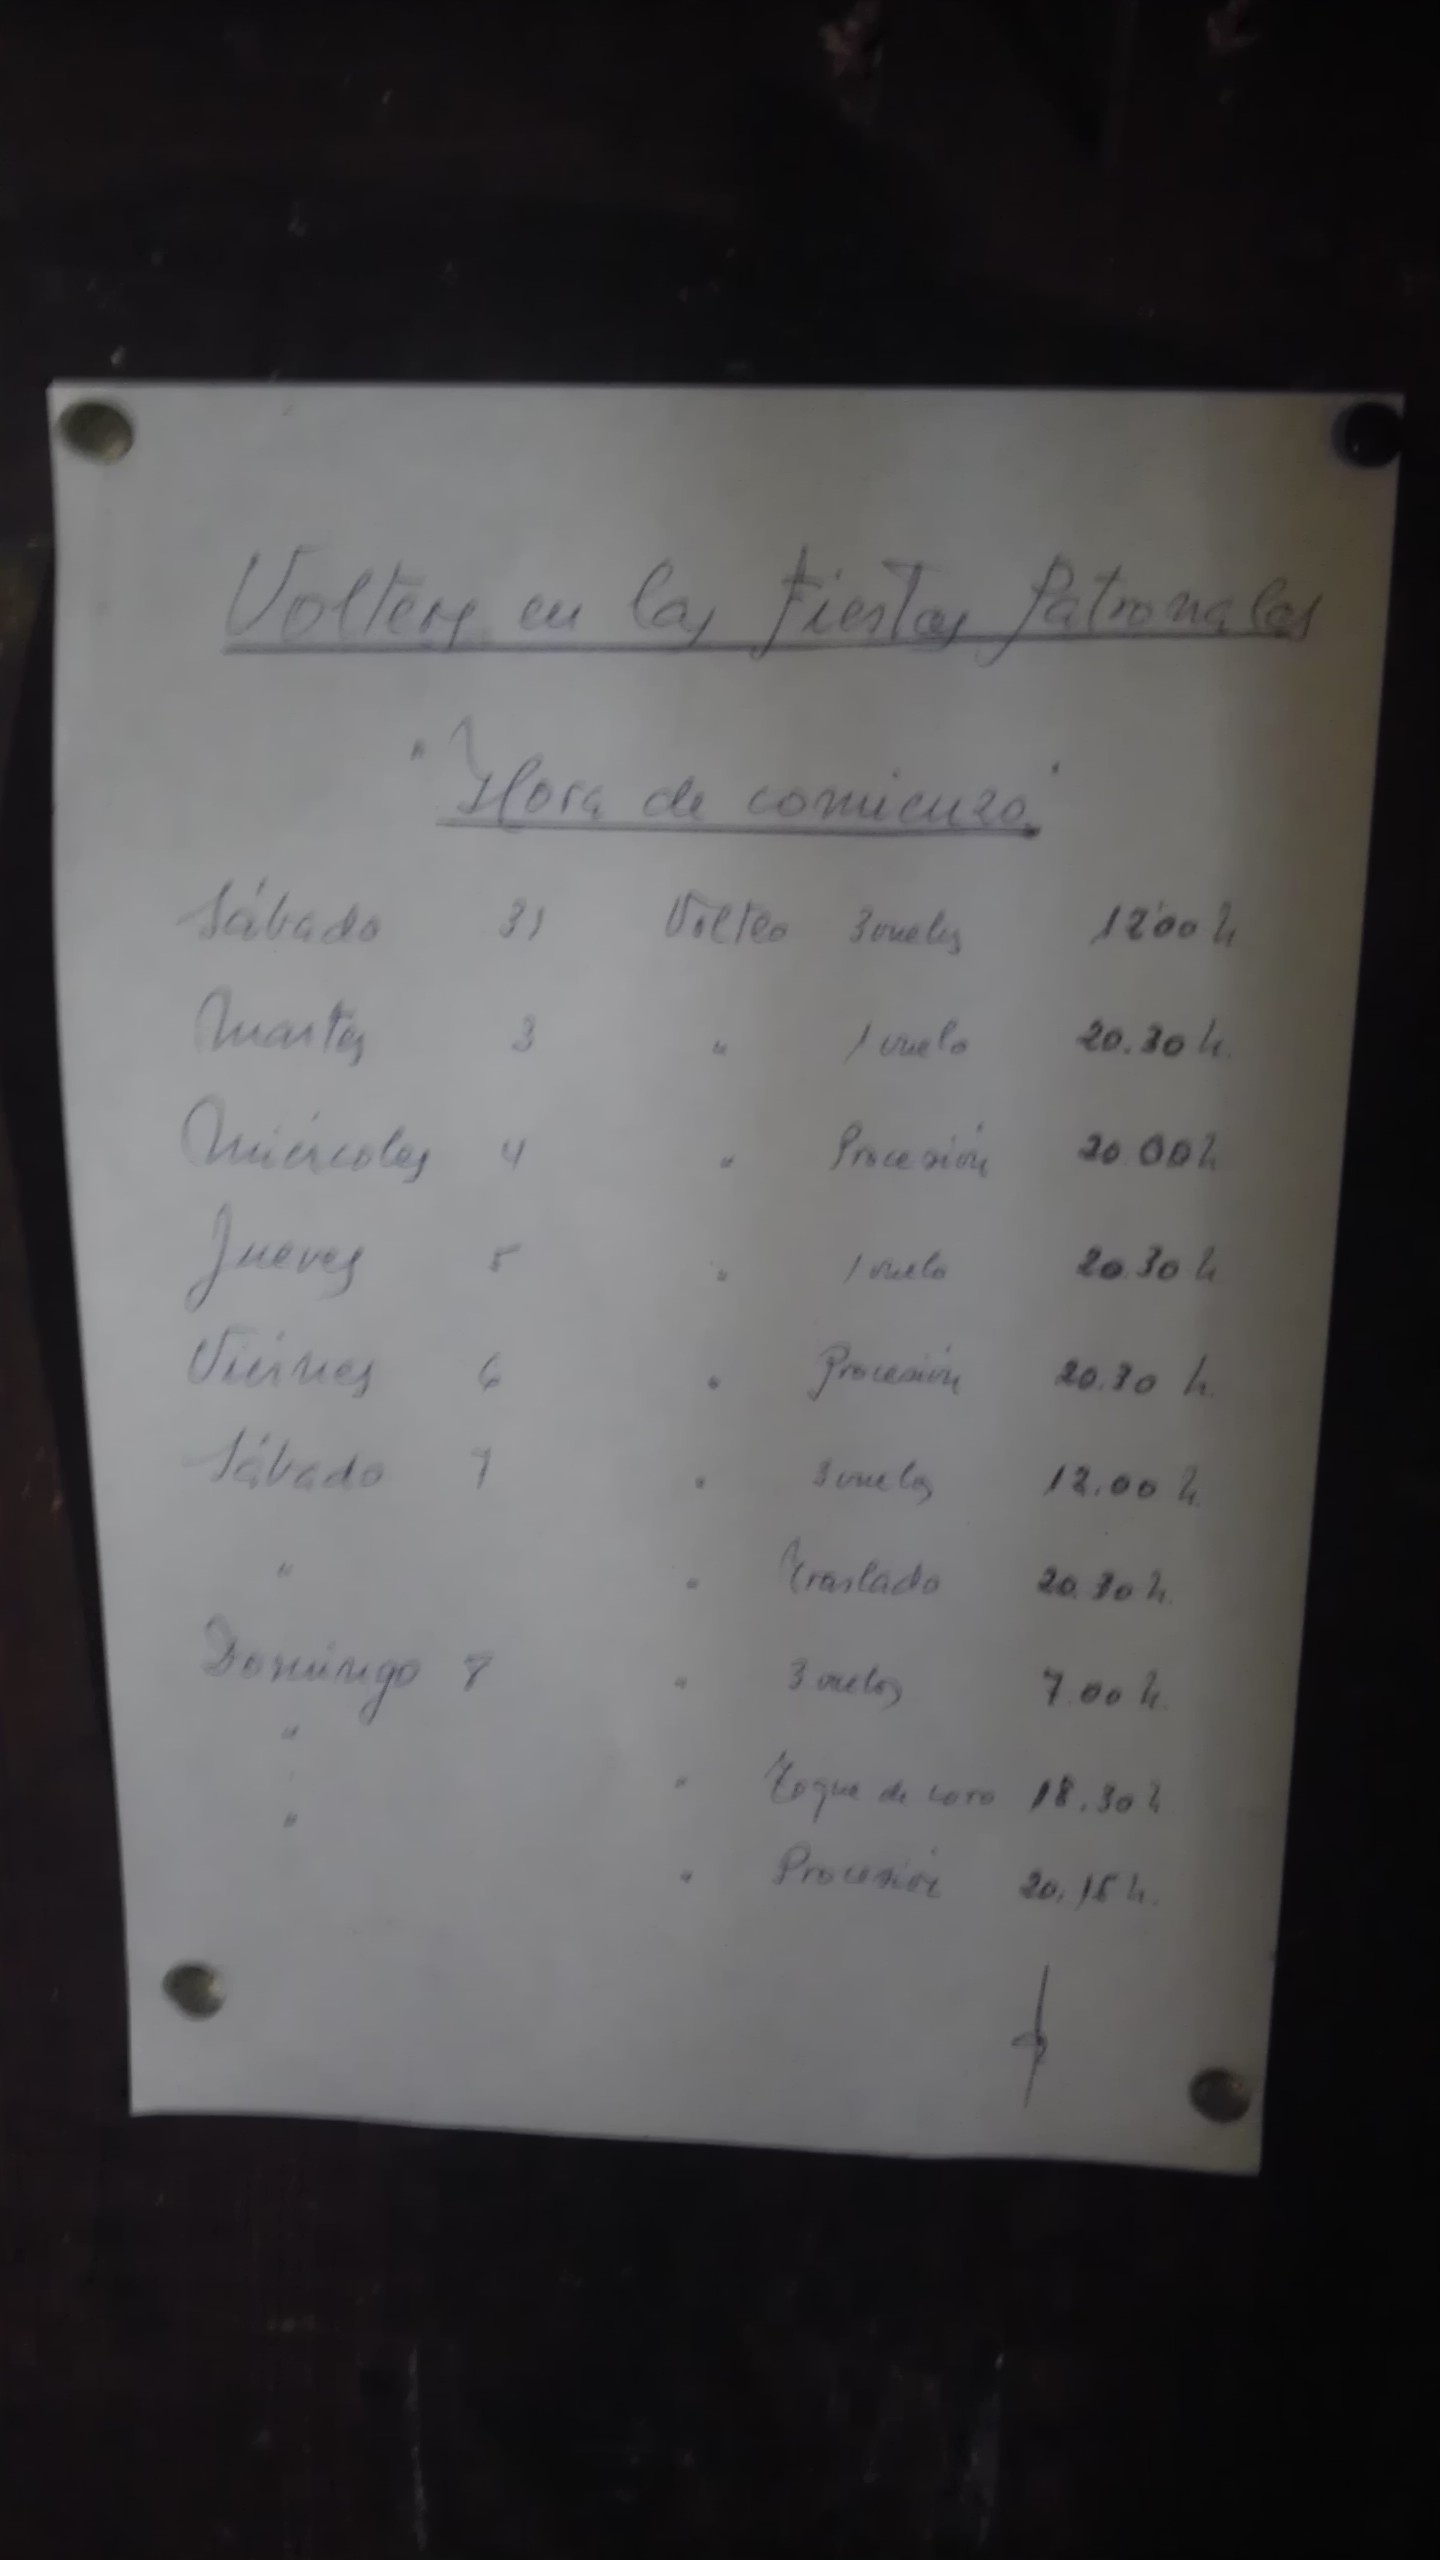 Volteos en las fiestas Patronales
"Hora de comienzo"
Sábado 31 Volteo 3 vuelos 12'00 h
Martes 3 " 1 vuelo 20.30 h.
Miércoles 4 " Procesión 20.00 h
Jueves 5 " 1 vuelo 20.30 h
Viernes 6 " Procesión 20.30 h.
Sábado 7 " 3 vuelos 12.00 h.
" " Traslado 20.30 h.
Domingo 8 " 3 vuelos 7.00 h.
" " Toque de coro 18.30 h
" " Procesión 20.15 h.